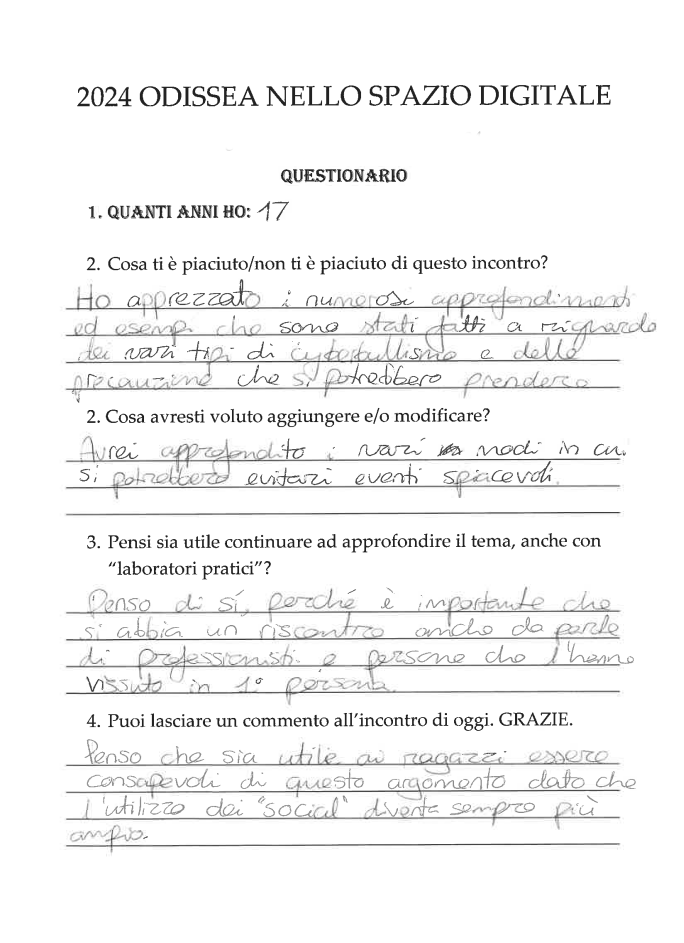 2024 ODISSEA NELLO SPAZIO DIGITALE
QUESTIONARIO
1. QUANTI ANNI HO: 17
2. Cosa ti è piaciuto/non ti è piaciuto di questo incontro?
Ho apprezzato i numerosi approfondimenti
ed esempi che sono stati fatti a riguardo
dei vari tipi di cyberbullismo e delle
precauzione che si potrebbero prendere
2. Cosa avresti voluto aggiungere e/o modificare?
Avrei approfondito i vari modi in cui
si potrebbero evitari eventi spiacevoli.
3. Pensi sia utile continuare ad approfondire il tema, anche con
“laboratori pratici”?
Penso di sí, perché è importante che
si abbia un riscontro anche da parte
di professionisti e persone che l'hanno
vissuto in 1° persona.
4. Puoi lasciare un commento all’incontro di oggi. GRAZIE.
Penso che sia utile ai ragazzi essere
consapevoli di questo argomento dato che
l'utilizzo dei "social" diventa sempre più
ampio.